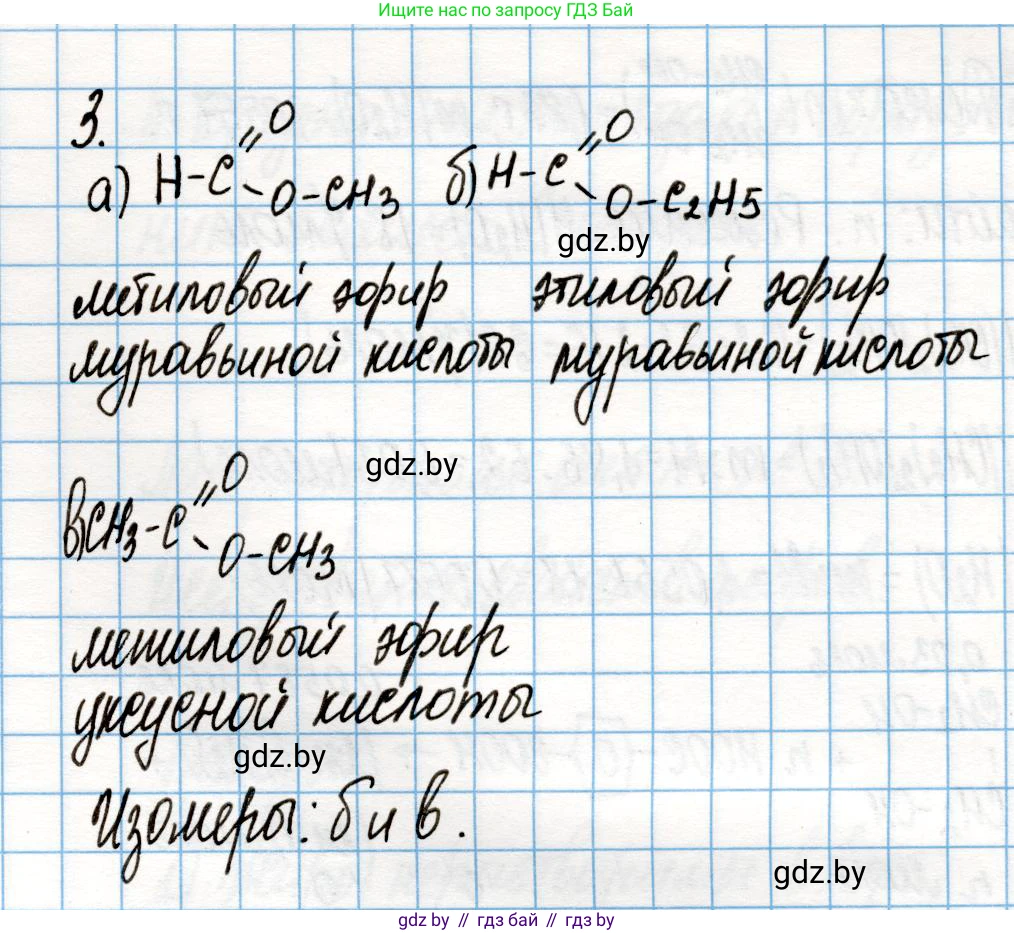 Ищите нас по запросу ГДЗ Бай
3.
а) H-C =O O-CH3 б) H-C =O O-C2H5
gdz.by
метиловый эфир этиловый эфир
муравьиной кислоты муравьиной кислоты
gdz.by
в) CH3-C =O O-CH3
метиловый эфир
уксусной кислоты
gdz.by
Изомеры: б и в.
gdz.by
gdz.by // гдз бай // гдз by